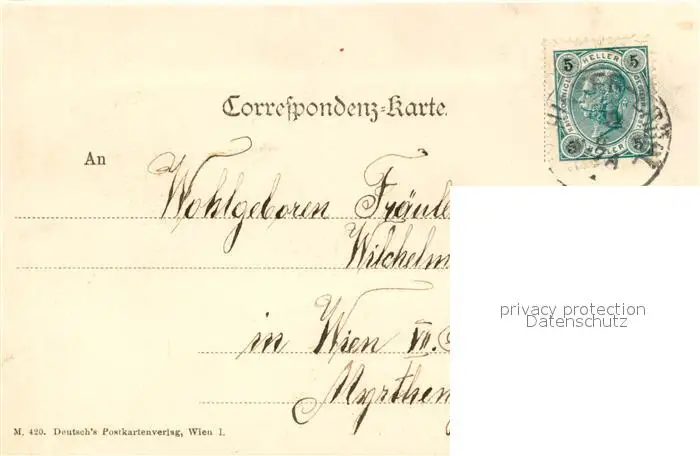 Correspondenz-Karte.
5 HELLER 5
An
Wohlgeboren Fräule
Wilhelm
in Wien VII.
Myrthen
privacy protection
Datenschutz
M. 420. Deutsch's Postkartenverlag, Wien I.